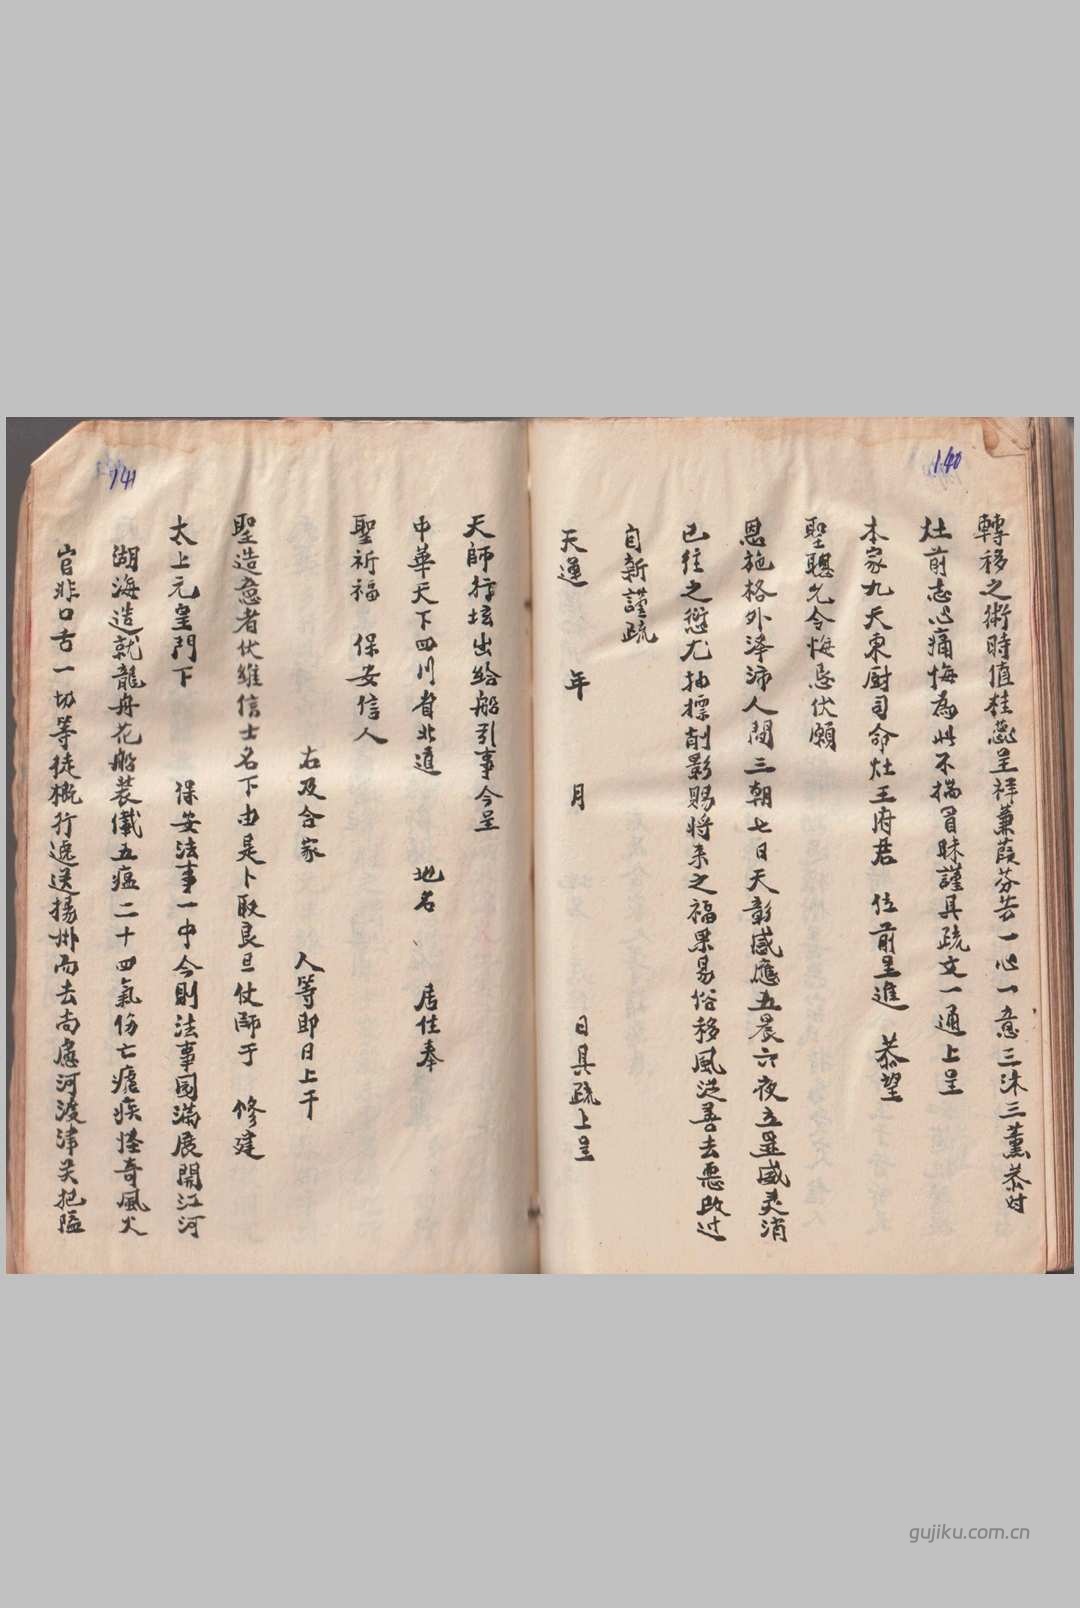 140
轉移之術時值桂蕊呈祥蒹葭芬芳一心一意三沐三薰恭对
灶前志心痛悔為此不揣冒昧謹具疏文一通上呈
本家九天東厨司命灶王府君 位前呈進 恭望
聖聰允令悔忌伏願
恩施格外泽沛人間三朝七日天彰感應五晨六夜立显威灵消
已往之愆尤抽標削影賜将来之福果易俗移風从善去惡改过
自新謹疏
天運 年 月 日具疏上呈
141
天師行坛出給船引事今呈
中華天下四川省北道 地名 居住奉
聖祈福 保安信人
右及合家 人等即日上干
聖造意者伏維信士名下由是卜取良旦仗師于 修建
太上元皇門下 保安法事一中今則法事圆滿展開江河
湖海造就龍舟花船装儎五瘟二十四氣伤亡瘧疾怪奇風火
官非口舌一切等徒概行逓送揚州而去尚慮河渡津关把隘
gujiku.com.cn